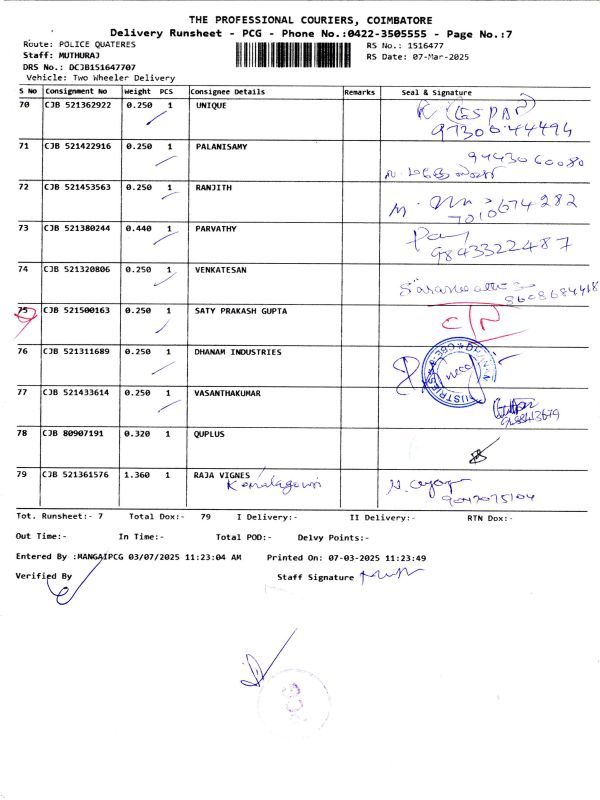 THE PROFESSIONAL COURIERS, COIMBATORE
Delivery Runsheet - PCG - Phone No.:0422-3505555 - Page No.:7
Route: POLICE QUATERES RS No.: 1516477
Staff: MUTHURAJ RS Date: 07-Mar-2025
DRS No.: DCJB151647707
Vehicle: Two Wheeler Delivery
S No Consignment No Weight PCS Consignee Details Remarks Seal & Signature
70 CJB 521362922 0.250 1 UNIQUE
71 CJB 521422916 0.250 1 PALANISAMY 9443060080
72 CJB 521453563 0.250 1 RANJITH 7010674282
73 CJB 521380244 0.440 1 PARVATHY 9843322487
74 CJB 521320806 0.250 1 VENKATESAN
75 CJB 521500163 0.250 1 SATY PRAKASH GUPTA
76 CJB 521311689 0.250 1 DHANAM INDUSTRIES
77 CJB 521433614 0.250 1 VASANTHAKUMAR
78 CJB 80907191 0.320 1 QUPLUS
79 CJB 521361576 1.360 1 RAJA VIGNES
Tot. Runsheet:- 7 Total Dox:- 79 I Delivery:- II Delivery:- RTN Dox:-
Out Time:- In Time:- Total POD:- Delvy Points:-
Entered By :MANGAIPCG 03/07/2025 11:23:04 AM Printed On: 07-03-2025 11:23:49
Verified By Staff Signature